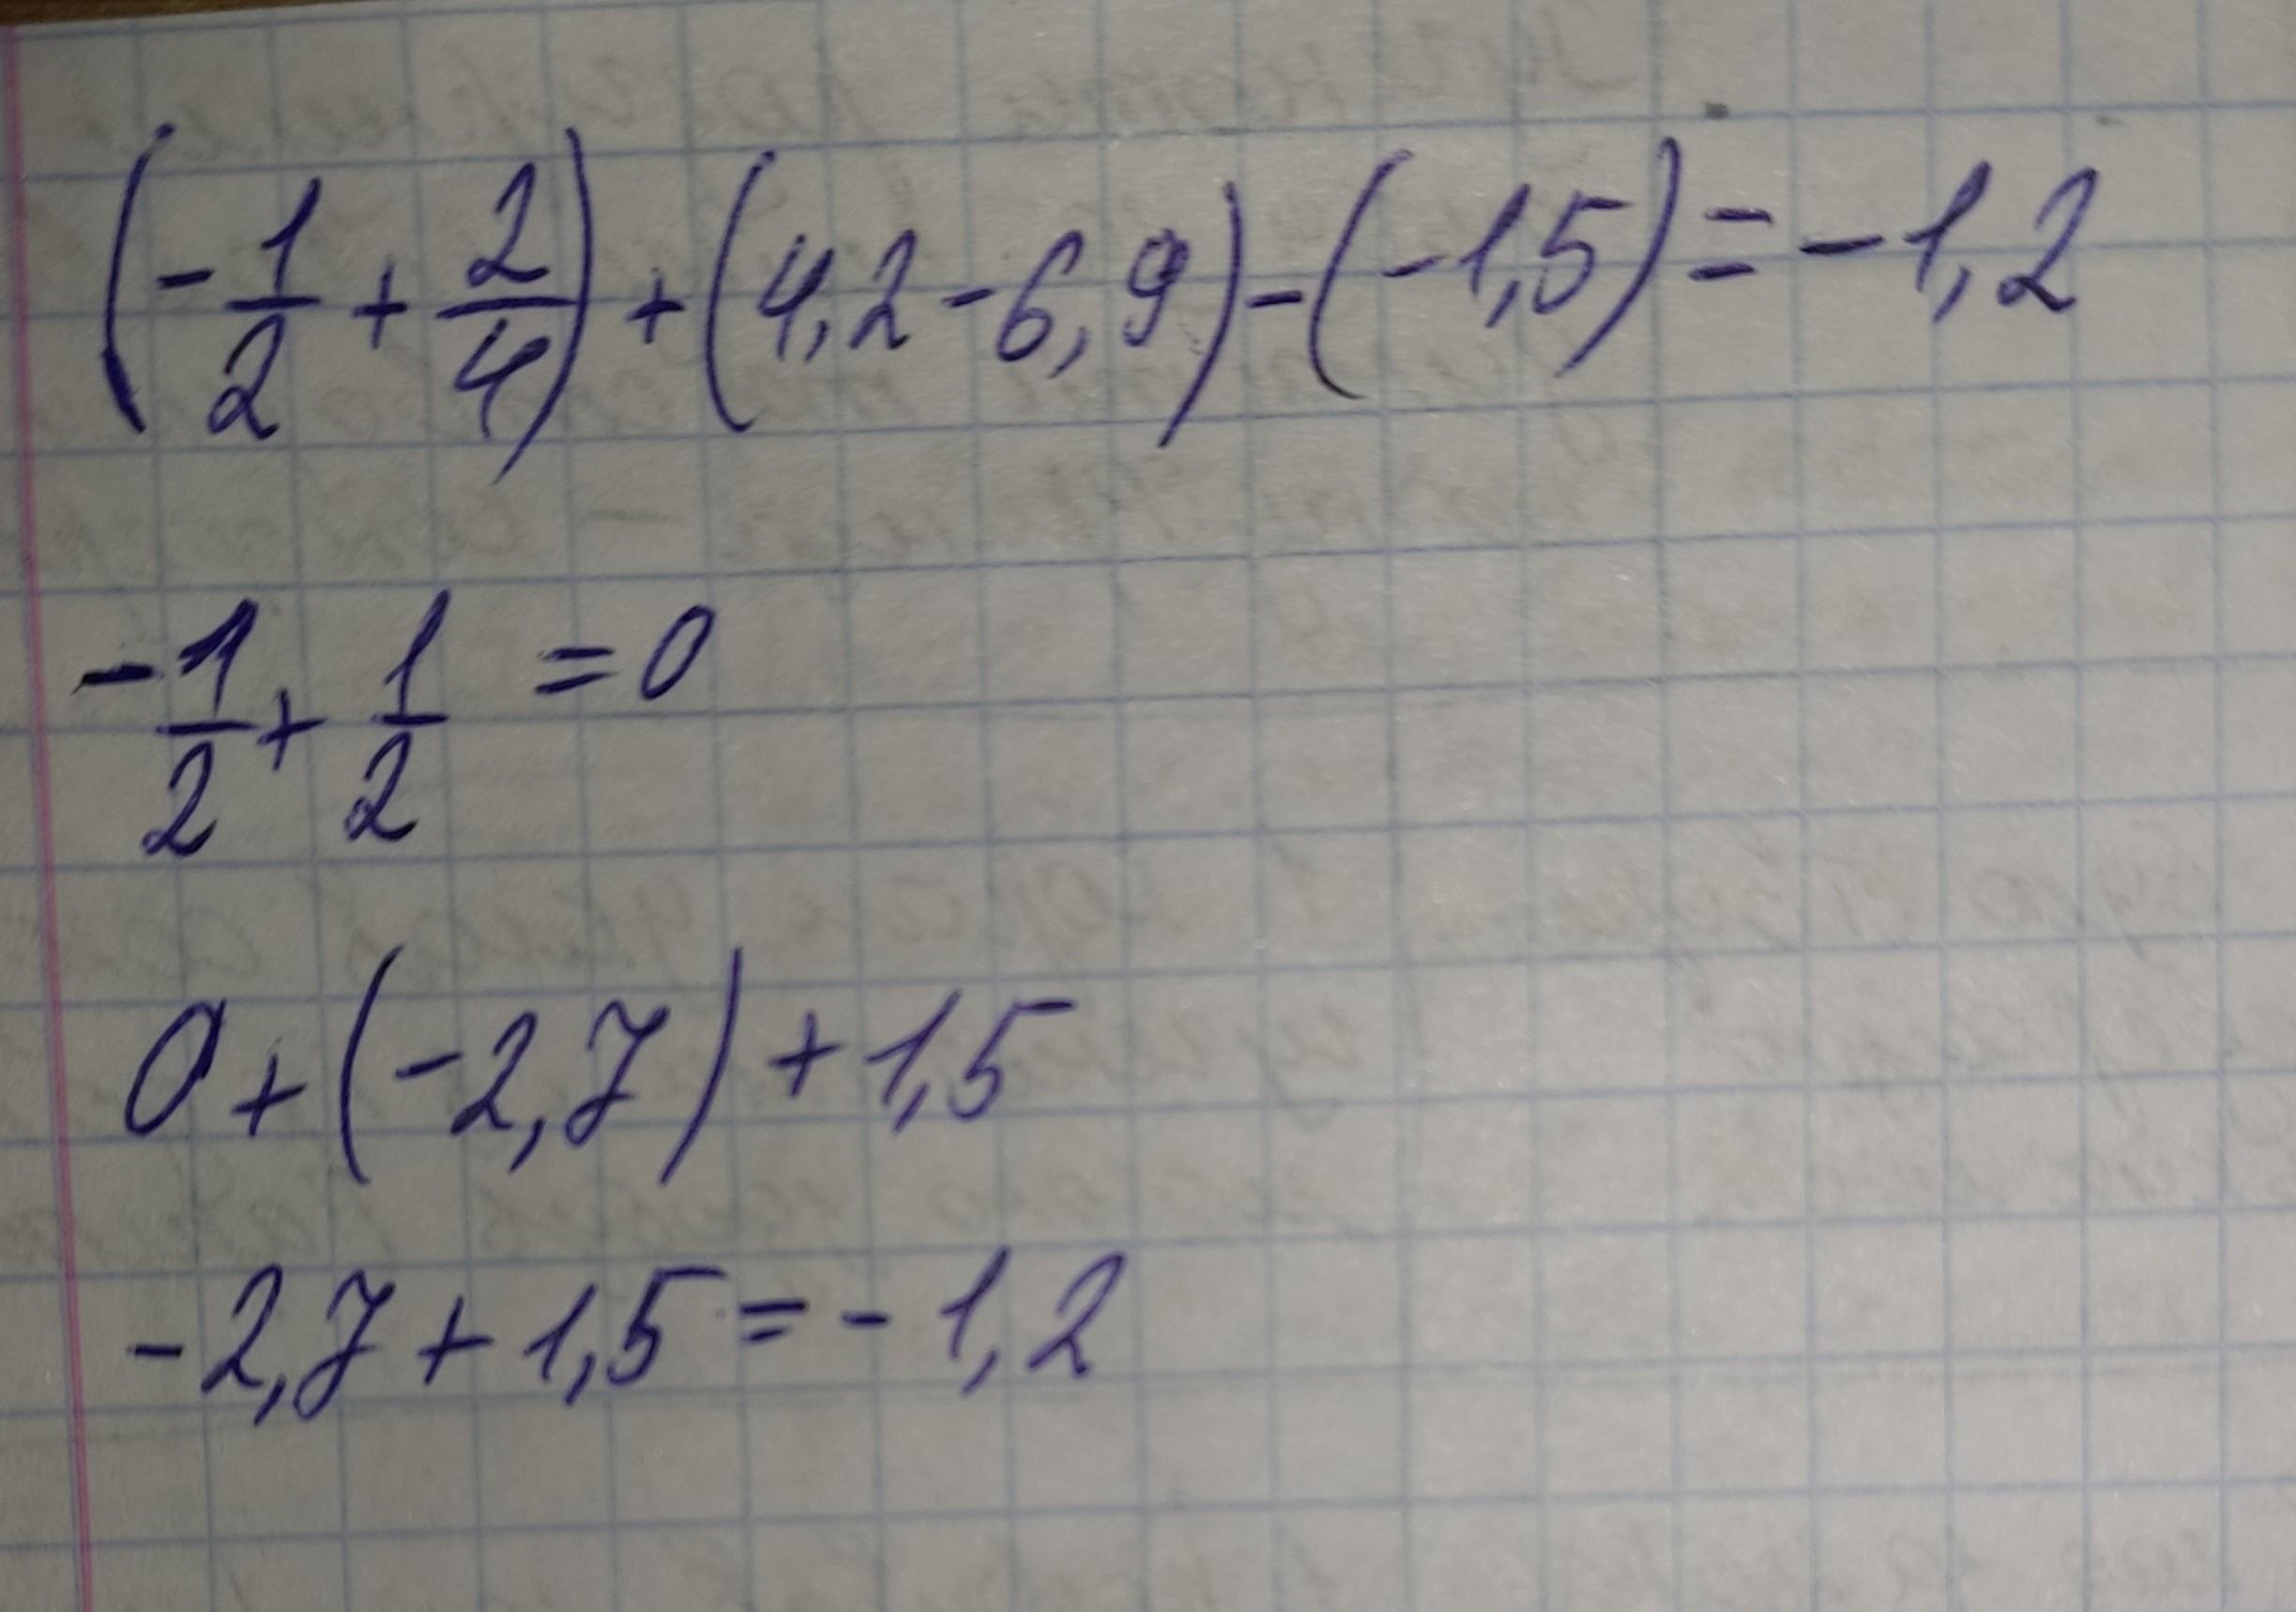 (-1/2 + 2/4) + (4,2 - 6,9) - (-1,5) = -1,2
-1/2 + 1/2 = 0
0 + (-2,7) + 1,5
-2,7 + 1,5 = -1,2